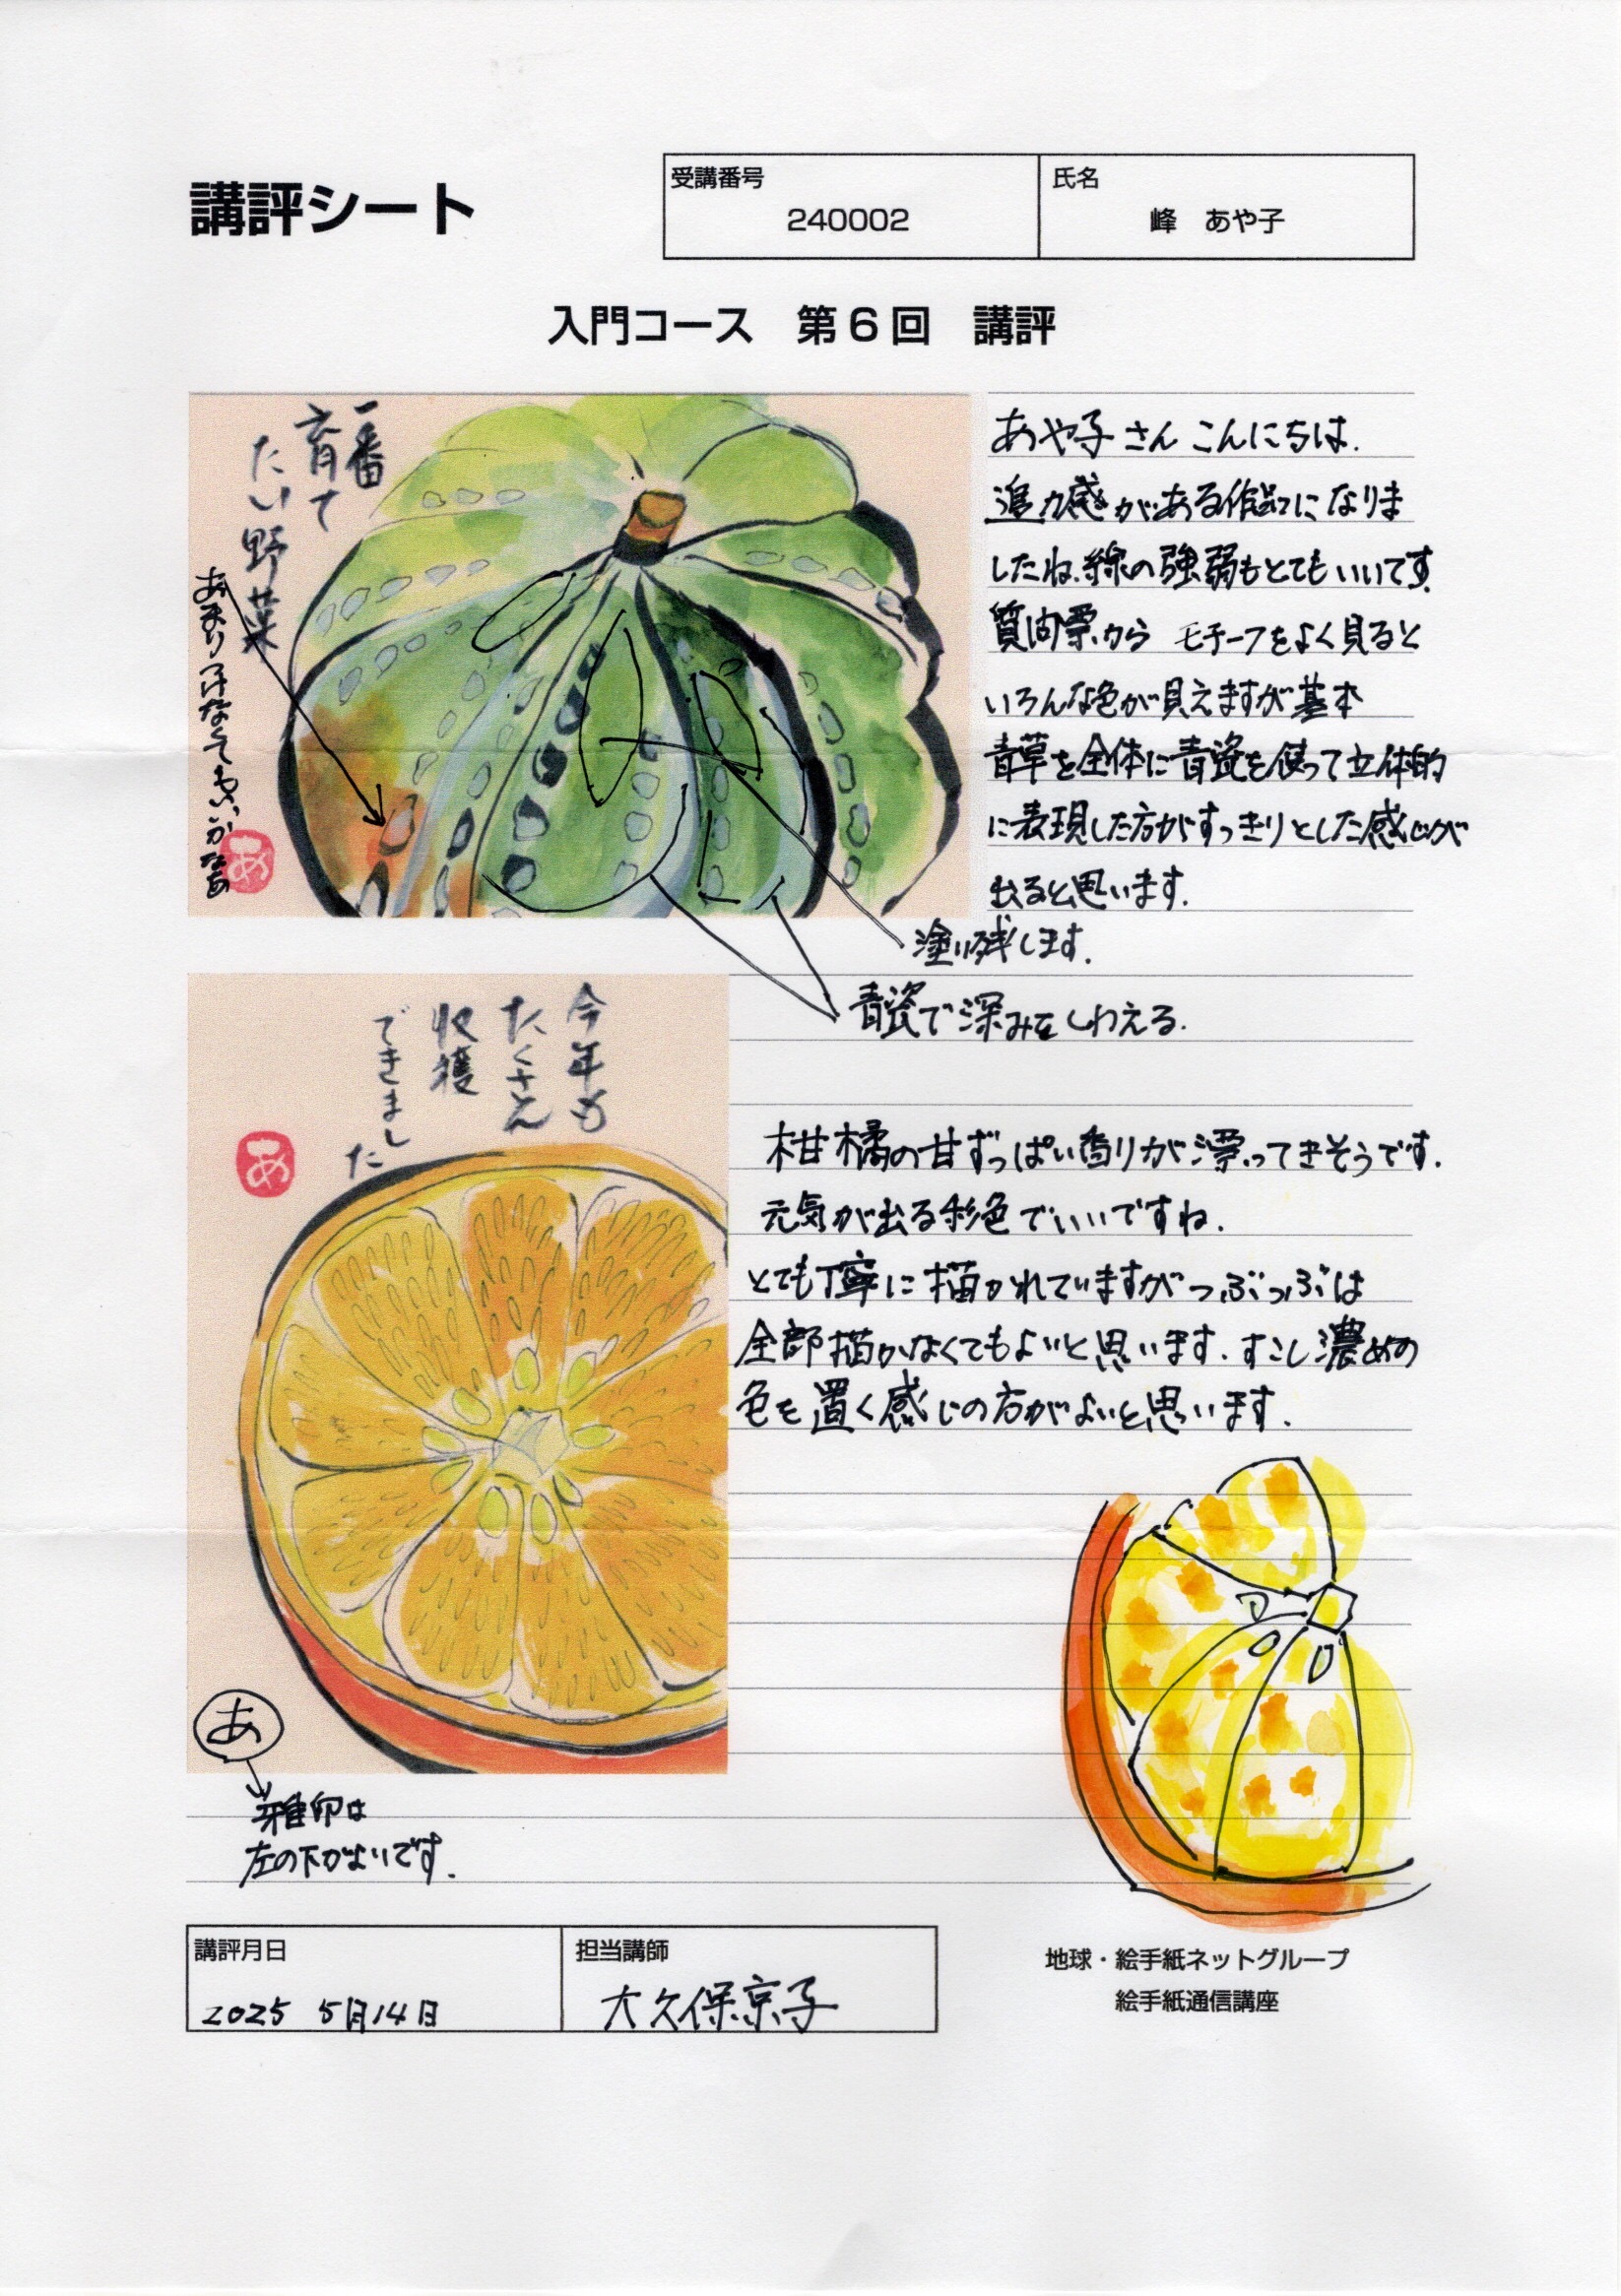 講評シート
受講番号
240002
氏名
峰　あや子
入門コース　第6回　講評
一番
育て
たい野菜
あまりつけなくてもいいかなぁ
あ
あや子さん こんにちは.
迫力感がある作品になりま
したね.線の強弱もとてもいいです.
質問票から モチーフをよく見ると
いろんな色が見えますが基本
青草を全体に青瓷を使って立体的
に表現した方がすっきりとした感じが
出ると思います.
塗り残します.
青瓷で深みをくわえる.
今年も
たくさん
収穫
できました
あ
柑橘の甘ずっぱい香りが漂ってきそうです.
元気が出る彩色でいいですね.
とても丁寧に描かれていますがつぶつぶは
全部描かなくてもよいと思います.すこし濃めの
色を置く感じの方がよいと思います.
あ
雅印は
左の下がよいです.
講評月日
2025 5月14日
担当講師
大久保京子
地球・絵手紙ネットグループ
絵手紙通信講座